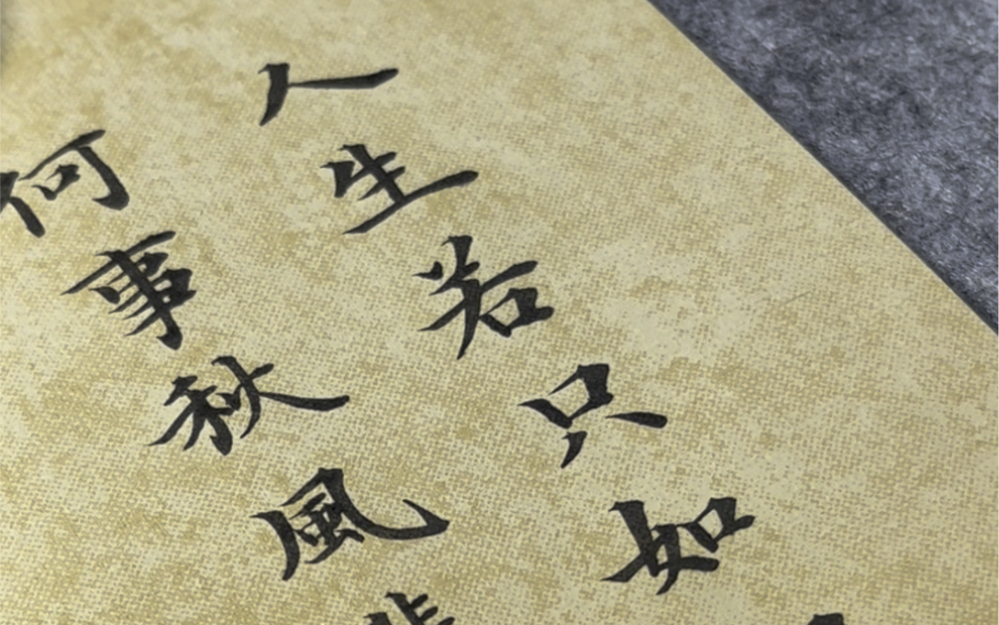 人生若只如
何事秋風